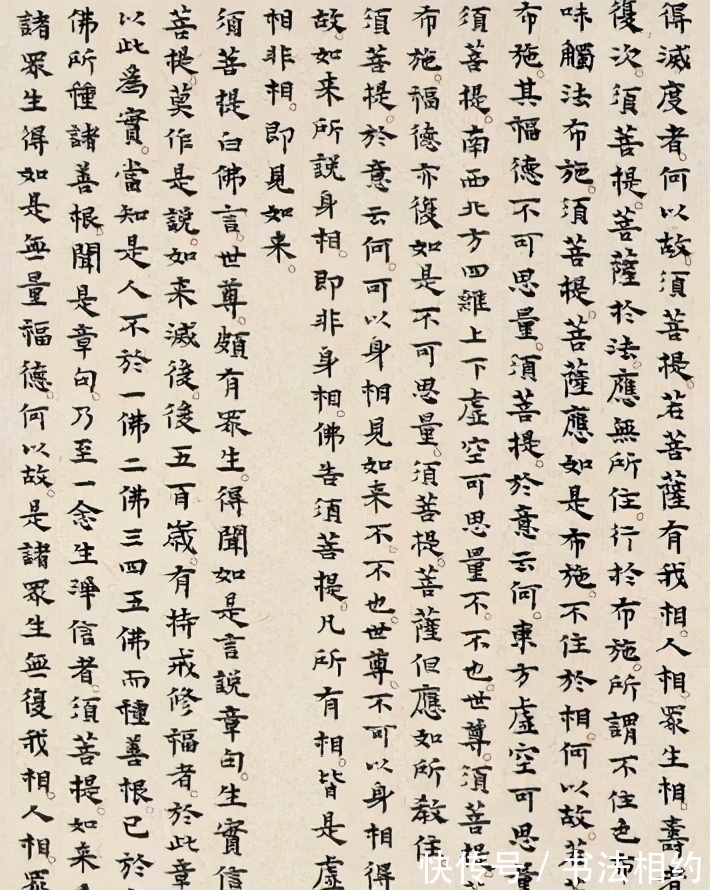 得滅度者。何以故。須菩提。若菩薩有我相。人相。眾生相。壽
復次。須菩提。菩薩於法。應無所住。行於布施。所謂不住色
味觸法布施。須菩提。菩薩應如是布施。不住於相。何以故。
布施。其福德不可思量。須菩提。於意云何。東方虛空可思量
須菩提。南西北方四維上下虛空可思量不。不也。世尊。須菩提。
布施。福德亦復如是不可思量。須菩提。菩薩但應如所教住。
須菩提。於意云何。可以身相見如来不。不也。世尊。不可以身相得
故。如来所說身相。即非身相。佛告須菩提。凡所有相。皆是虛
相非相。即見如来。
須菩提白佛言。世尊。頗有眾生。得聞如是言說章句。生實信
菩提。莫作是說。如来滅後。後五百歲。有持戒修福者。於此章
以此為實。當知是人不於一佛二佛三四五佛而種善根。已於
佛所種諸善根。聞是章句。乃至一念生淨信者。須菩提。如来
諸眾生得如是無量福德。何以故。是諸眾生無復我相。人相。眾
快传号 / 书法相约